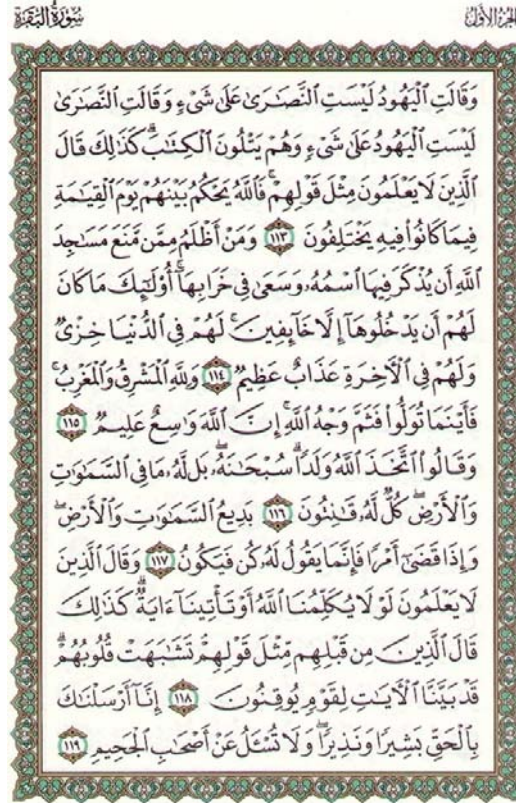 الجزء الأول
سورة البقرة
وَقَالَتِ الْيَهُودُ لَيْسَتِ النَّصَـٰرَىٰ عَلَىٰ شَىْءٍ وَقَالَتِ النَّصَـٰرَىٰ
لَيْسَتِ الْيَهُودُ عَلَىٰ شَىْءٍ وَهُمْ يَتْلُونَ الْكِتَـٰبَ ۗ كَذَٰلِكَ قَالَ
الَّذِينَ لَا يَعْلَمُونَ مِثْلَ قَوْلِهِمْ ۚ فَاللَّهُ يَحْكُمُ بَيْنَهُمْ يَوْمَ الْقِيَـٰمَةِ
فِيمَا كَانُوا۟ فِيهِ يَخْتَلِفُونَ ١١٣ وَمَنْ أَظْلَمُ مِمَّن مَّنَعَ مَسَـٰجِدَ
اللَّهِ أَن يُذْكَرَ فِيهَا اسْمُهُۥ وَسَعَىٰ فِى خَرَابِهَآ ۚ أُو۟لَـٰٓئِكَ مَا كَانَ
لَهُمْ أَن يَدْخُلُوهَآ إِلَّا خَآئِفِينَ ۚ لَهُمْ فِى الدُّنْيَا خِزْىٌ
وَلَهُمْ فِى الْـَٔاخِرَةِ عَذَابٌ عَظِيمٌ ١١٤ وَلِلَّهِ الْمَشْرِقُ وَالْمَغْرِبُ ۚ
فَأَيْنَمَا تُوَلُّوا۟ فَثَمَّ وَجْهُ اللَّهِ ۚ إِنَّ اللَّهَ وَٰسِعٌ عَلِيمٌ ١١٥
وَقَالُوا۟ اتَّخَذَ اللَّهُ وَلَدًا ۗ سُبْحَـٰنَهُۥ ۖ بَل لَّهُۥ مَا فِى السَّمَـٰوَٰتِ
وَالْأَرْضِ ۖ كُلٌّ لَّهُۥ قَـٰنِتُونَ ١١٦ بَدِيعُ السَّمَـٰوَٰتِ وَالْأَرْضِ ۖ
وَإِذَا قَضَىٰٓ أَمْرًا فَإِنَّمَا يَقُولُ لَهُۥ كُن فَيَكُونُ ١١٧ وَقَالَ الَّذِينَ
لَا يَعْلَمُونَ لَوْلَا يُكَلِّمُنَا اللَّهُ أَوْ تَأْتِينَآ ءَايَةٌ ۗ كَذَٰلِكَ
قَالَ الَّذِينَ مِن قَبْلِهِم مِّثْلَ قَوْلِهِمْ ۘ تَشَـٰبَهَتْ قُلُوبُهُمْ ۗ
قَدْ بَيَّنَّا الْـَٔايَـٰتِ لِقَوْمٍ يُوقِنُونَ ١١٨ إِنَّآ أَرْسَلْنَـٰكَ
بِالْحَقِّ بَشِيرًا وَنَذِيرًا ۖ وَلَا تُسْـَٔلُ عَنْ أَصْحَـٰبِ الْجَحِيمِ ١١٩